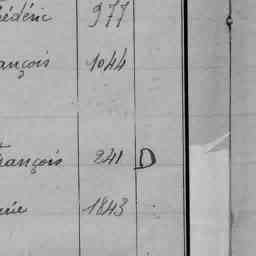 édéric 977
ançois 1044
rançois 241 D
rie 1843